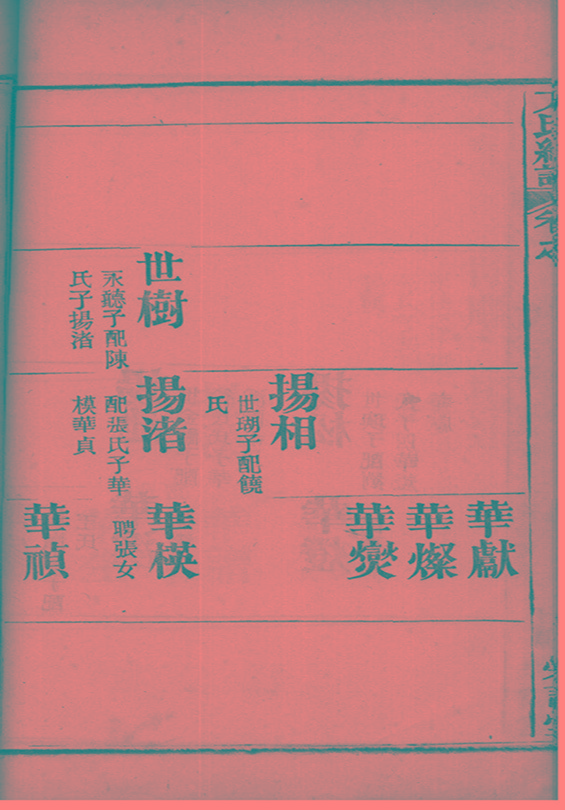 世樹
永聽子配陳
氏子揚渚
揚相
世瑚子配饒
氏
揚渚
配張氏子華
模華貞
華獻
華燦
華爕
華模
聘張女
華禎